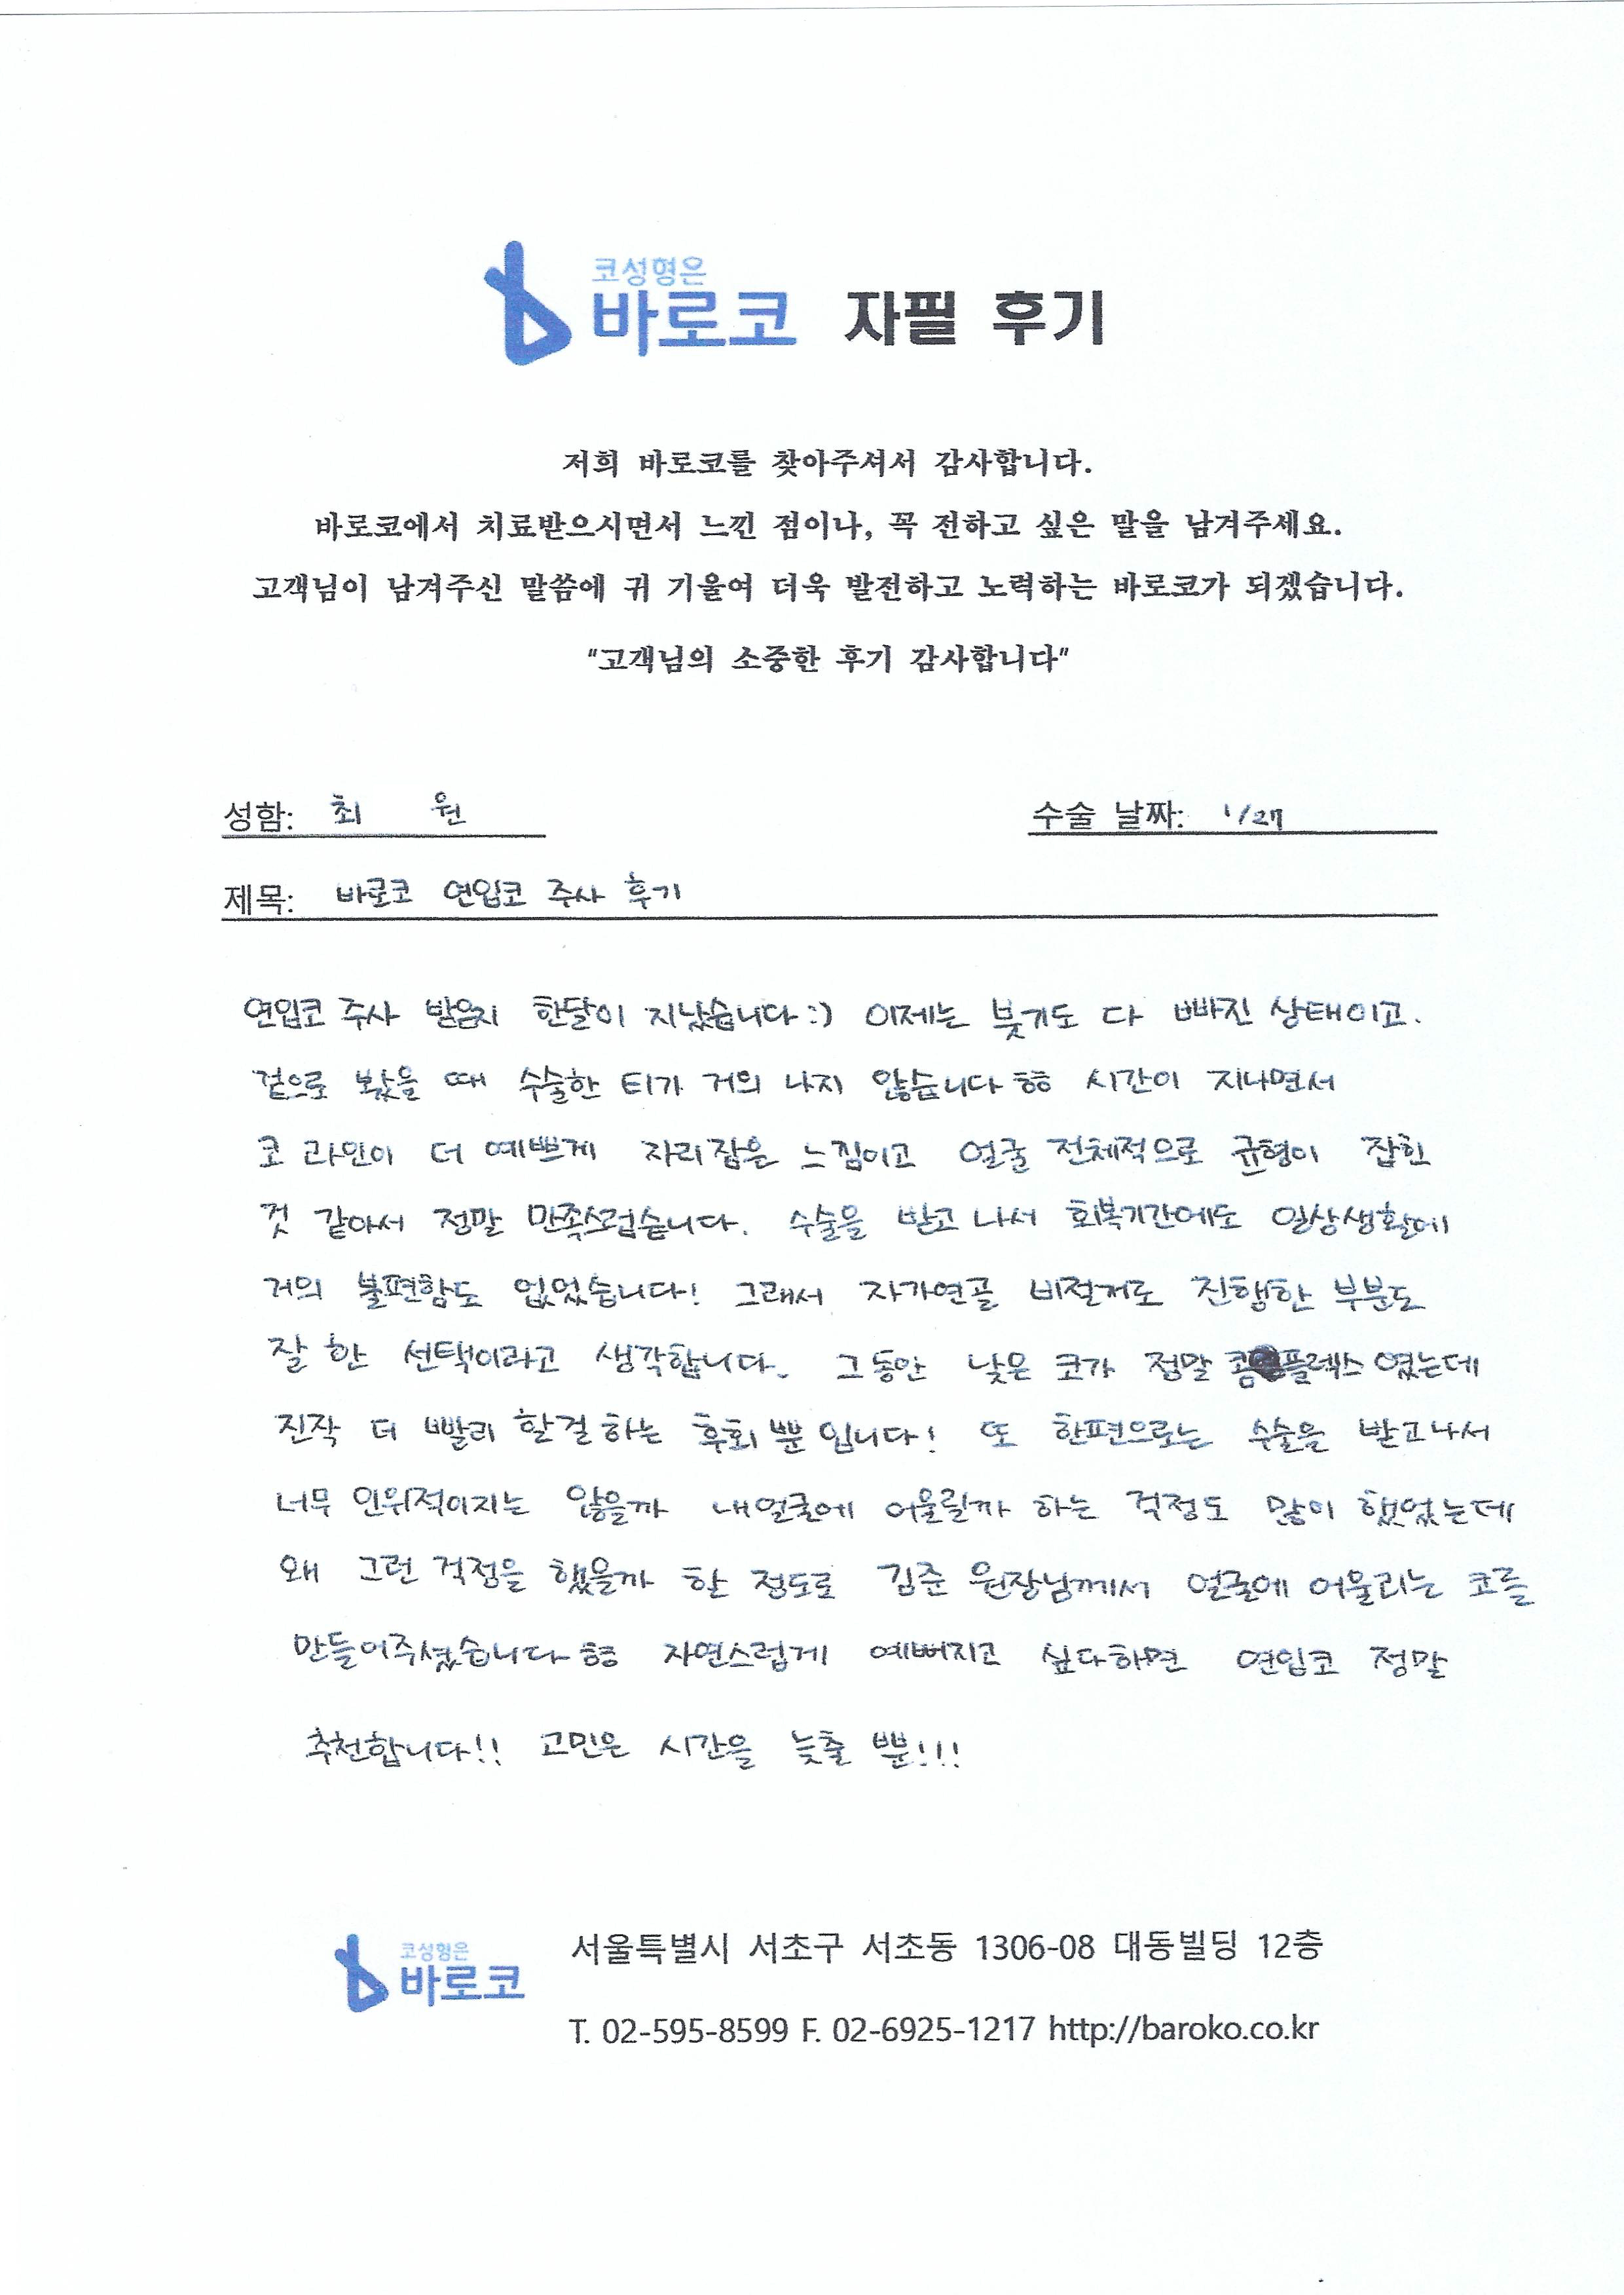 코성형은
바로코 자필 후기
저희 바로코를 찾아주셔서 감사합니다.
바로코에서 치료받으시면서 느낀 점이나, 꼭 전하고 싶은 말을 남겨주세요.
고객님이 남겨주신 말씀에 귀 기울여 더욱 발전하고 노력하는 바로코가 되겠습니다.
"고객님의 소중한 후기 감사합니다"
성함: 최 원 수술 날짜: 1/27
제목: 바로코 연입코 주사 후기
연입코 주사 받은지 한달이 지났습니다 :) 이제는 붓기도 다 빠진 상태이고.
겉으로 봤을 때 수술한 티가 거의 나지 않습니다 ㅎㅎ 시간이 지나면서
코 라인이 더 예쁘게 자리잡은 느낌이고 얼굴 전체적으로 균형이 잡힌
것 같아서 정말 만족스럽습니다. 수술을 받고 나서 회복기간에도 일상생활에
거의 불편함도 없었습니다! 그래서 자가연골 비절개로 진행한 부분도
잘 한 선택이라고 생각합니다. 그동안 낮은 코가 정말 콤플렉스 였는데
진작 더 빨리 할걸 하는 후회 뿐 입니다! 또 한편으로는 수술을 받고나서
너무 인위적이지는 않을까 내얼굴에 어울릴까 하는 걱정도 많이 했었는데
왜 그런 걱정을 했을까 할 정도로 김준 원장님께서 얼굴에 어울리는 코를
만들어주셨습니다 ㅎㅎ 자연스럽게 예뻐지고 싶다하면 연입코 정말
추천합니다!! 고민은 시간을 늦출 뿐!!!
코성형은
바로코
서울특별시 서초구 서초동 1306-08 대동빌딩 12층
T. 02-595-8599 F. 02-6925-1217 http://baroko.co.kr